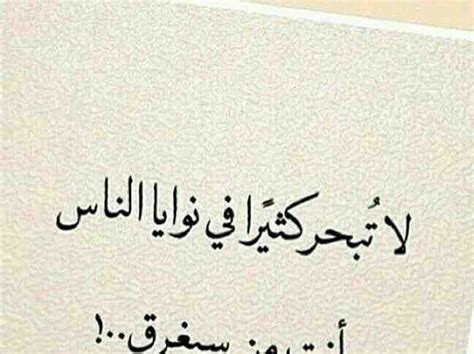 لا تُبحر كثيرًا في نوايا الناس
أنت من سيغرق..!